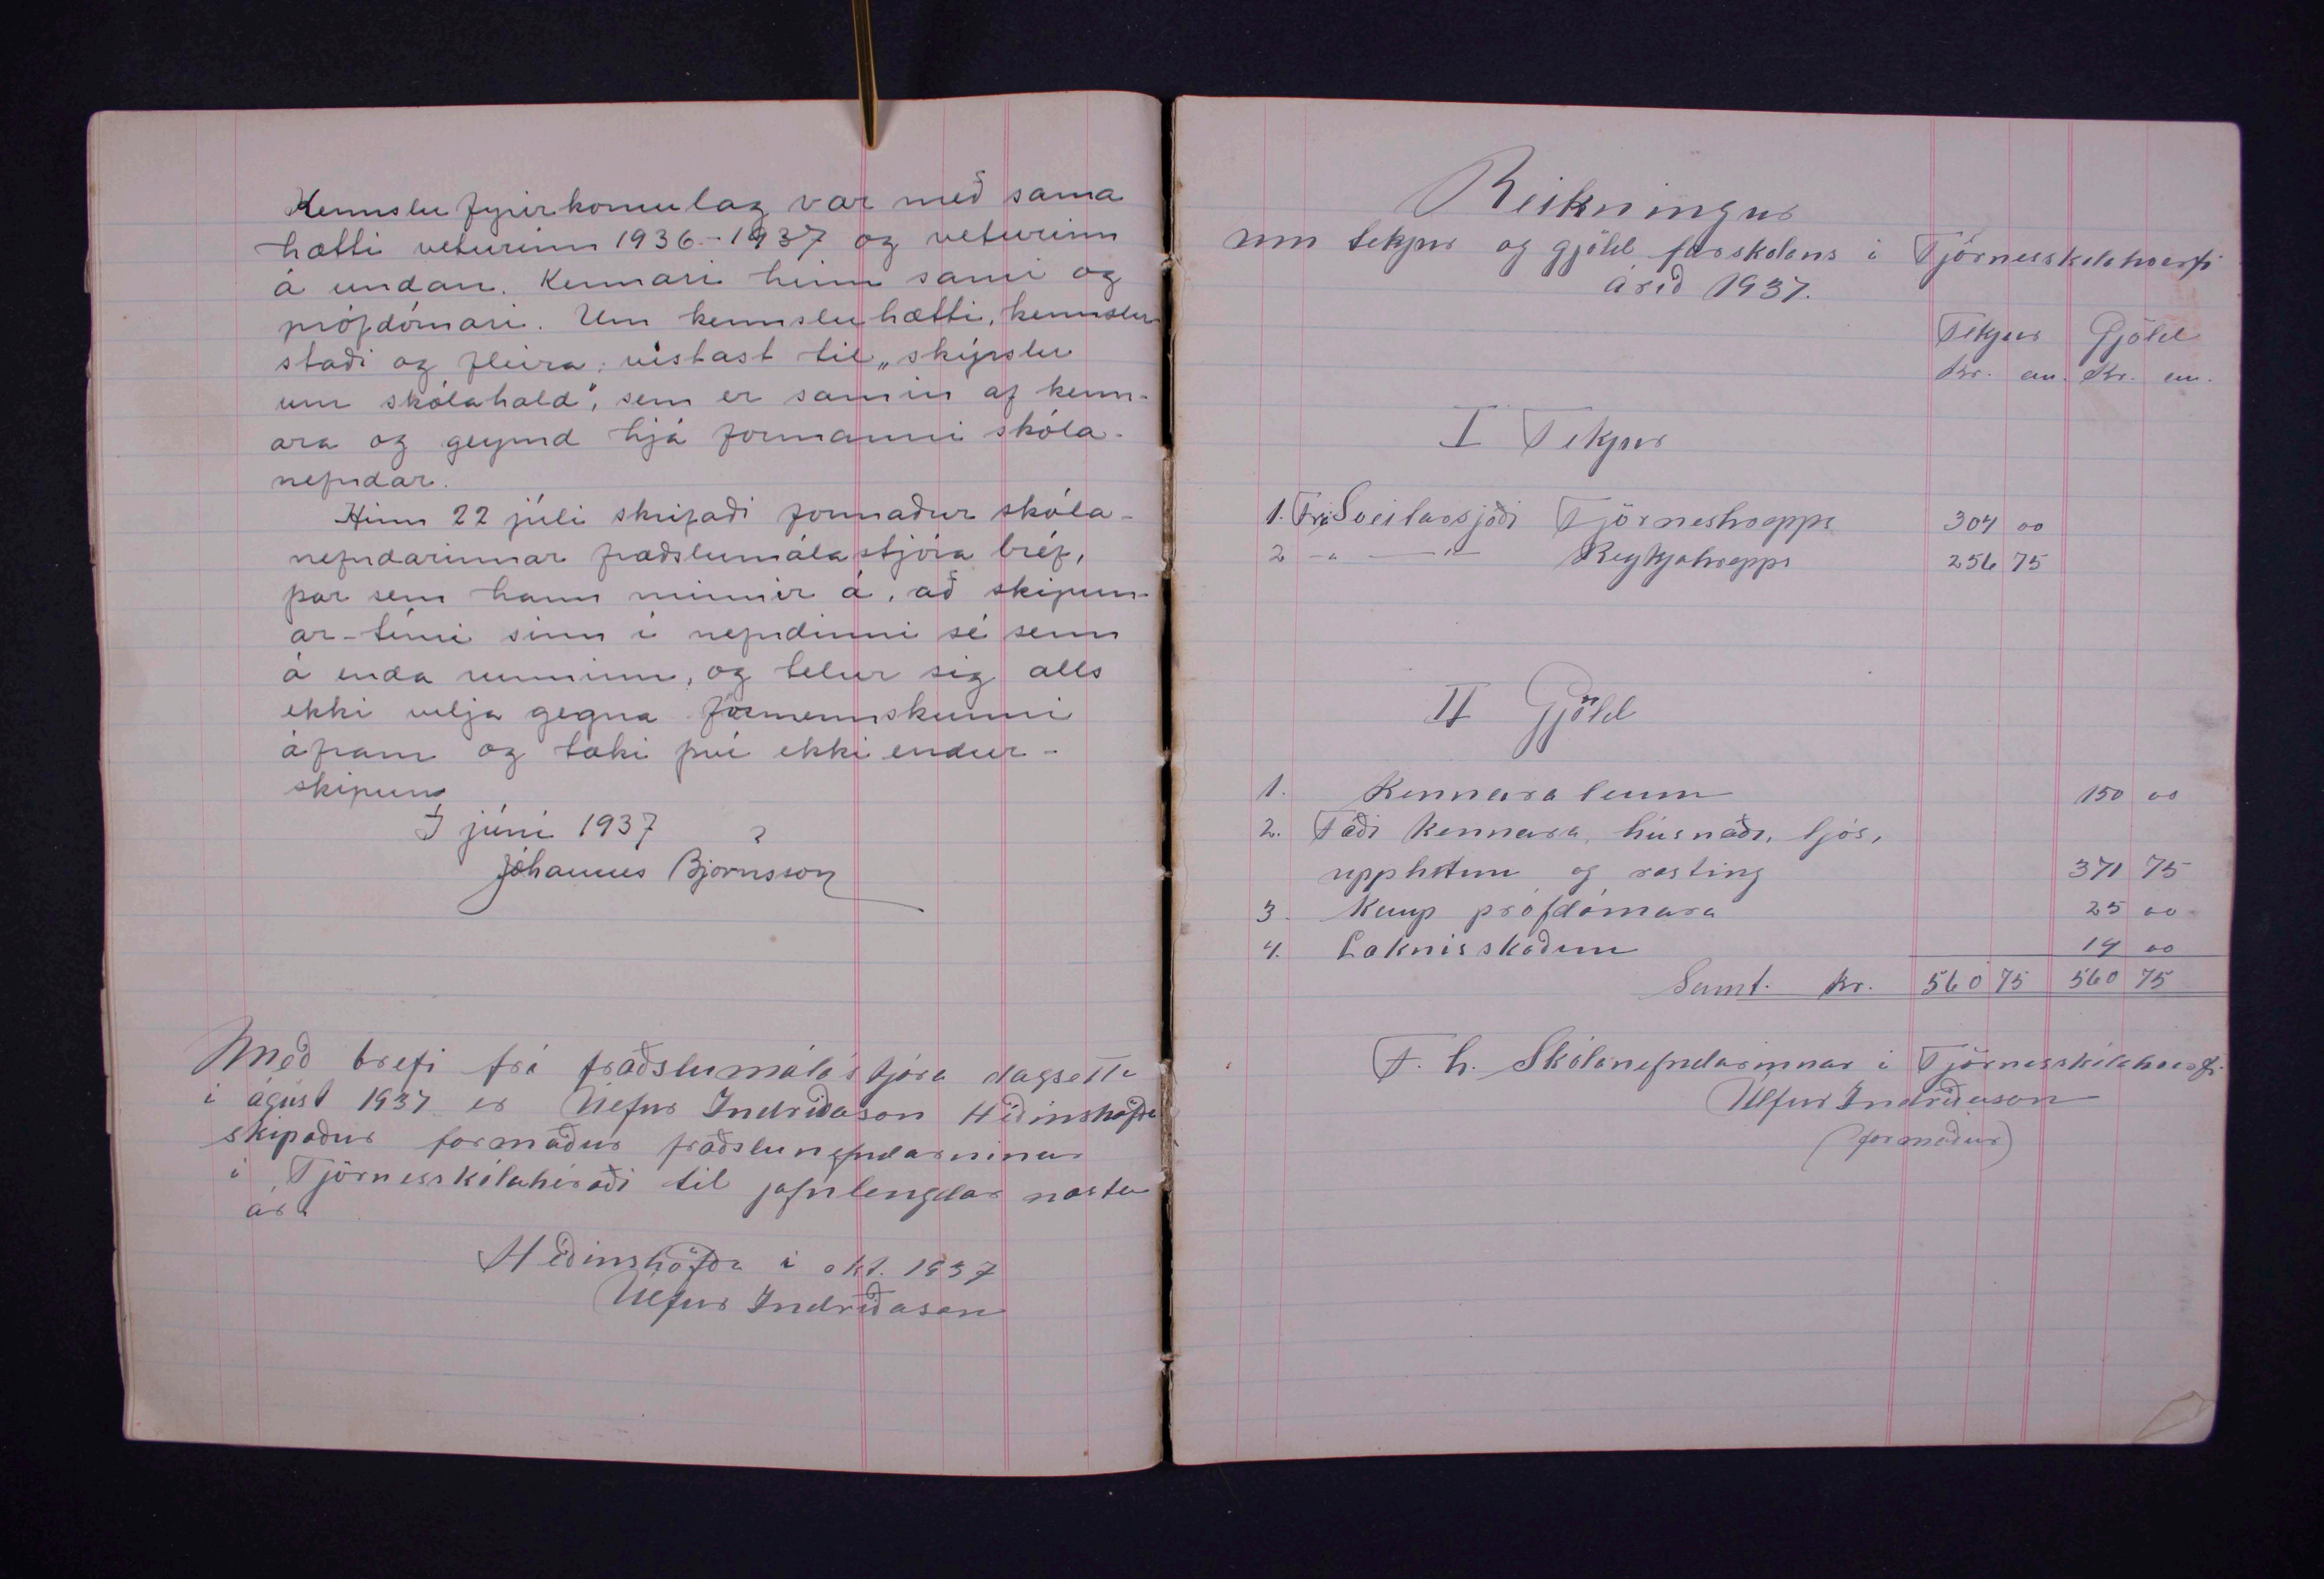 Kennslufyrirkomulag var með sama
hætti veturinn 1936-1937 og veturinn
á undan. Kennari hinn sami og
prófdómari. Um kennsluhætti, kennslu-
staði og fleira, vísast til „skýrslu
um skólahald", sem er samin af kenn-
ara og geymd hjá formanni skóla-
nefndar.
Hinn 22 júli skrifaði formaður skóla-
nefndarinnar fræðslumálastjóra bréf,
þar sem hann minnir á, að skipun-
ar-tími sinn í nefndinni sé senn
á enda runninn, og telur sig alls
ekki vilja gegna formennskunni
áfram og taki því ekki endur-
skipun
Í júní 1937 ?
Jóhannes Björnsson
Með brefi frá fræðslumálastjóra dagsettu
í ágúst 1937 er Úlfur Indriðason Héðinshöfða
skipaður formaður fræðslunefndarinnar
í Tjörnesskólahéraði til jafnlengdar næsta
árs
Héðinshöfða í okt. 1937
Úlfur Indriðason
Reikningur
um tekjur og gjöld farskólans í Tjörnesskólahverfi
árið 1937.
Tekjur Gjöld
Kr. au. Kr. au.
I Tekjur
1. Frá Sveitarsjóði Tjörneshrepps 304 00
2 -"- -"- Reykjahrepps 256 75
II Gjöld
1. Kennaralaun 150 00
2. Fæði kennara, húsnæði, ljós,
upphitun og ræsting 371 75
3. Kaup prófdómara 25 00
4. Læknisskoðun 14 00
Samt. Kr. 560 75 560 75
F. h. Skólanefndarinnar í Tjörnesskólahverfi
Úlfur Indriðason
(formaður)